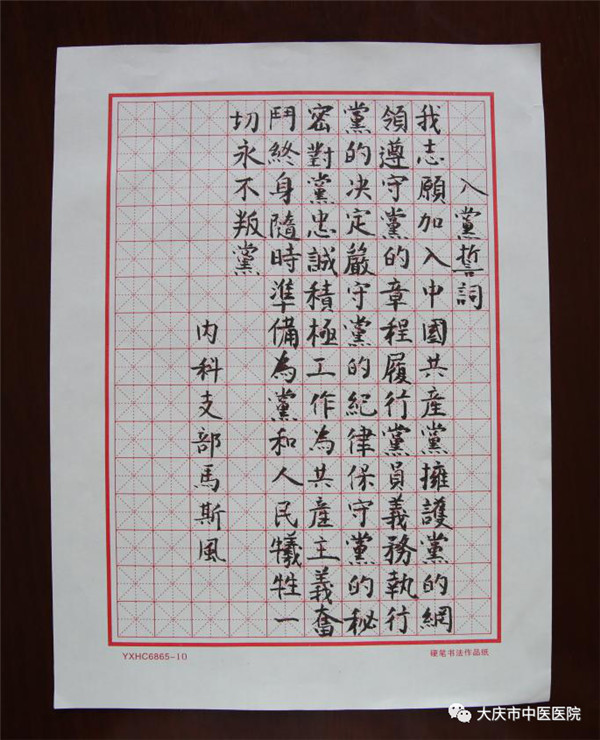 入黨誓詞
我志願加入中國共産黨擁護黨的網
領遵守黨的章程履行黨員義務執行
黨的决定嚴守黨的紀律保守黨的秘
密對黨忠誠積極工作為共産主義奮
鬥終身隨時準備為黨和人民犧牲一
切永不叛黨
内科支部馬斯風
YXHC6865-10
硬笔书法作品纸
大庆市中医医院